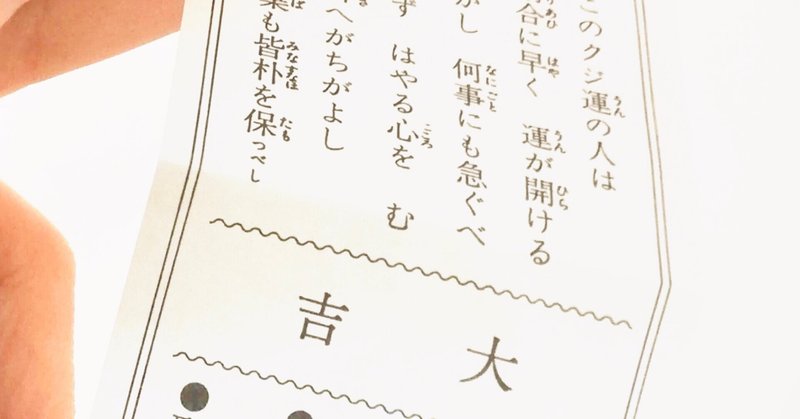 このクジ運の人は
合に早く 運が開ける
かし 何事にも急ぐべ
ず はやる心を む
へがちがよし
葉も皆朴を保つべし
大吉